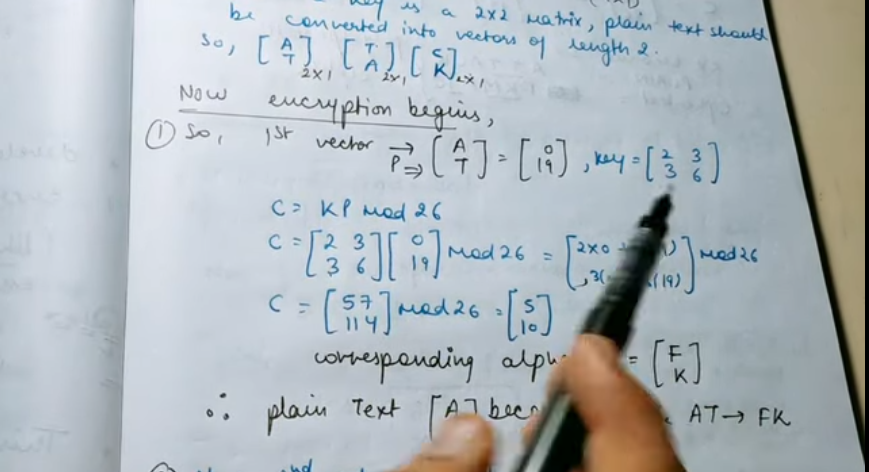 key is a 2x2 matrix, plain text should
be converted into vectors of length 2.
So, [A T]2x1 [T A]2x1 [C K]2x1
Now encryption begins,
① So, 1st vector P ⇒ [A T] = [0 19], key = [2 3 3 6]
C = KP Mod 26
C = [2 3 3 6] [0 19] Mod 26 = [2x0 3( (19)] Mod 26
C = [57 114] Mod 26 = [5 10]
corresponding = [F K]
∴ plain Text [A AT → FK
and